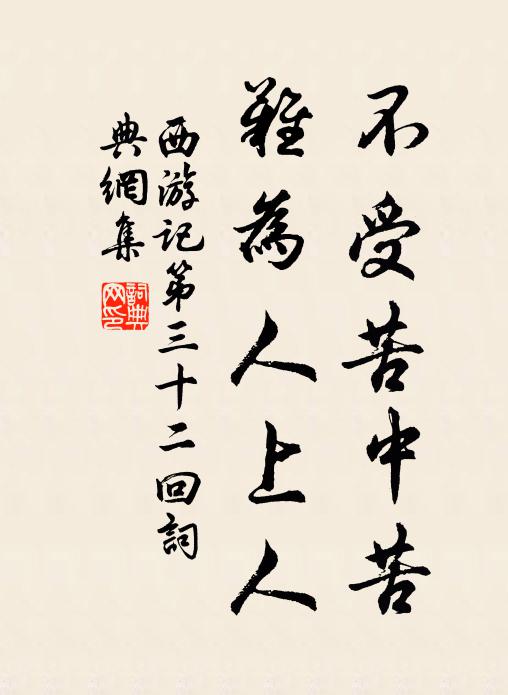 不受苦中苦
難為人上人
西游记第三十二回詞
典網集
詞典
网印